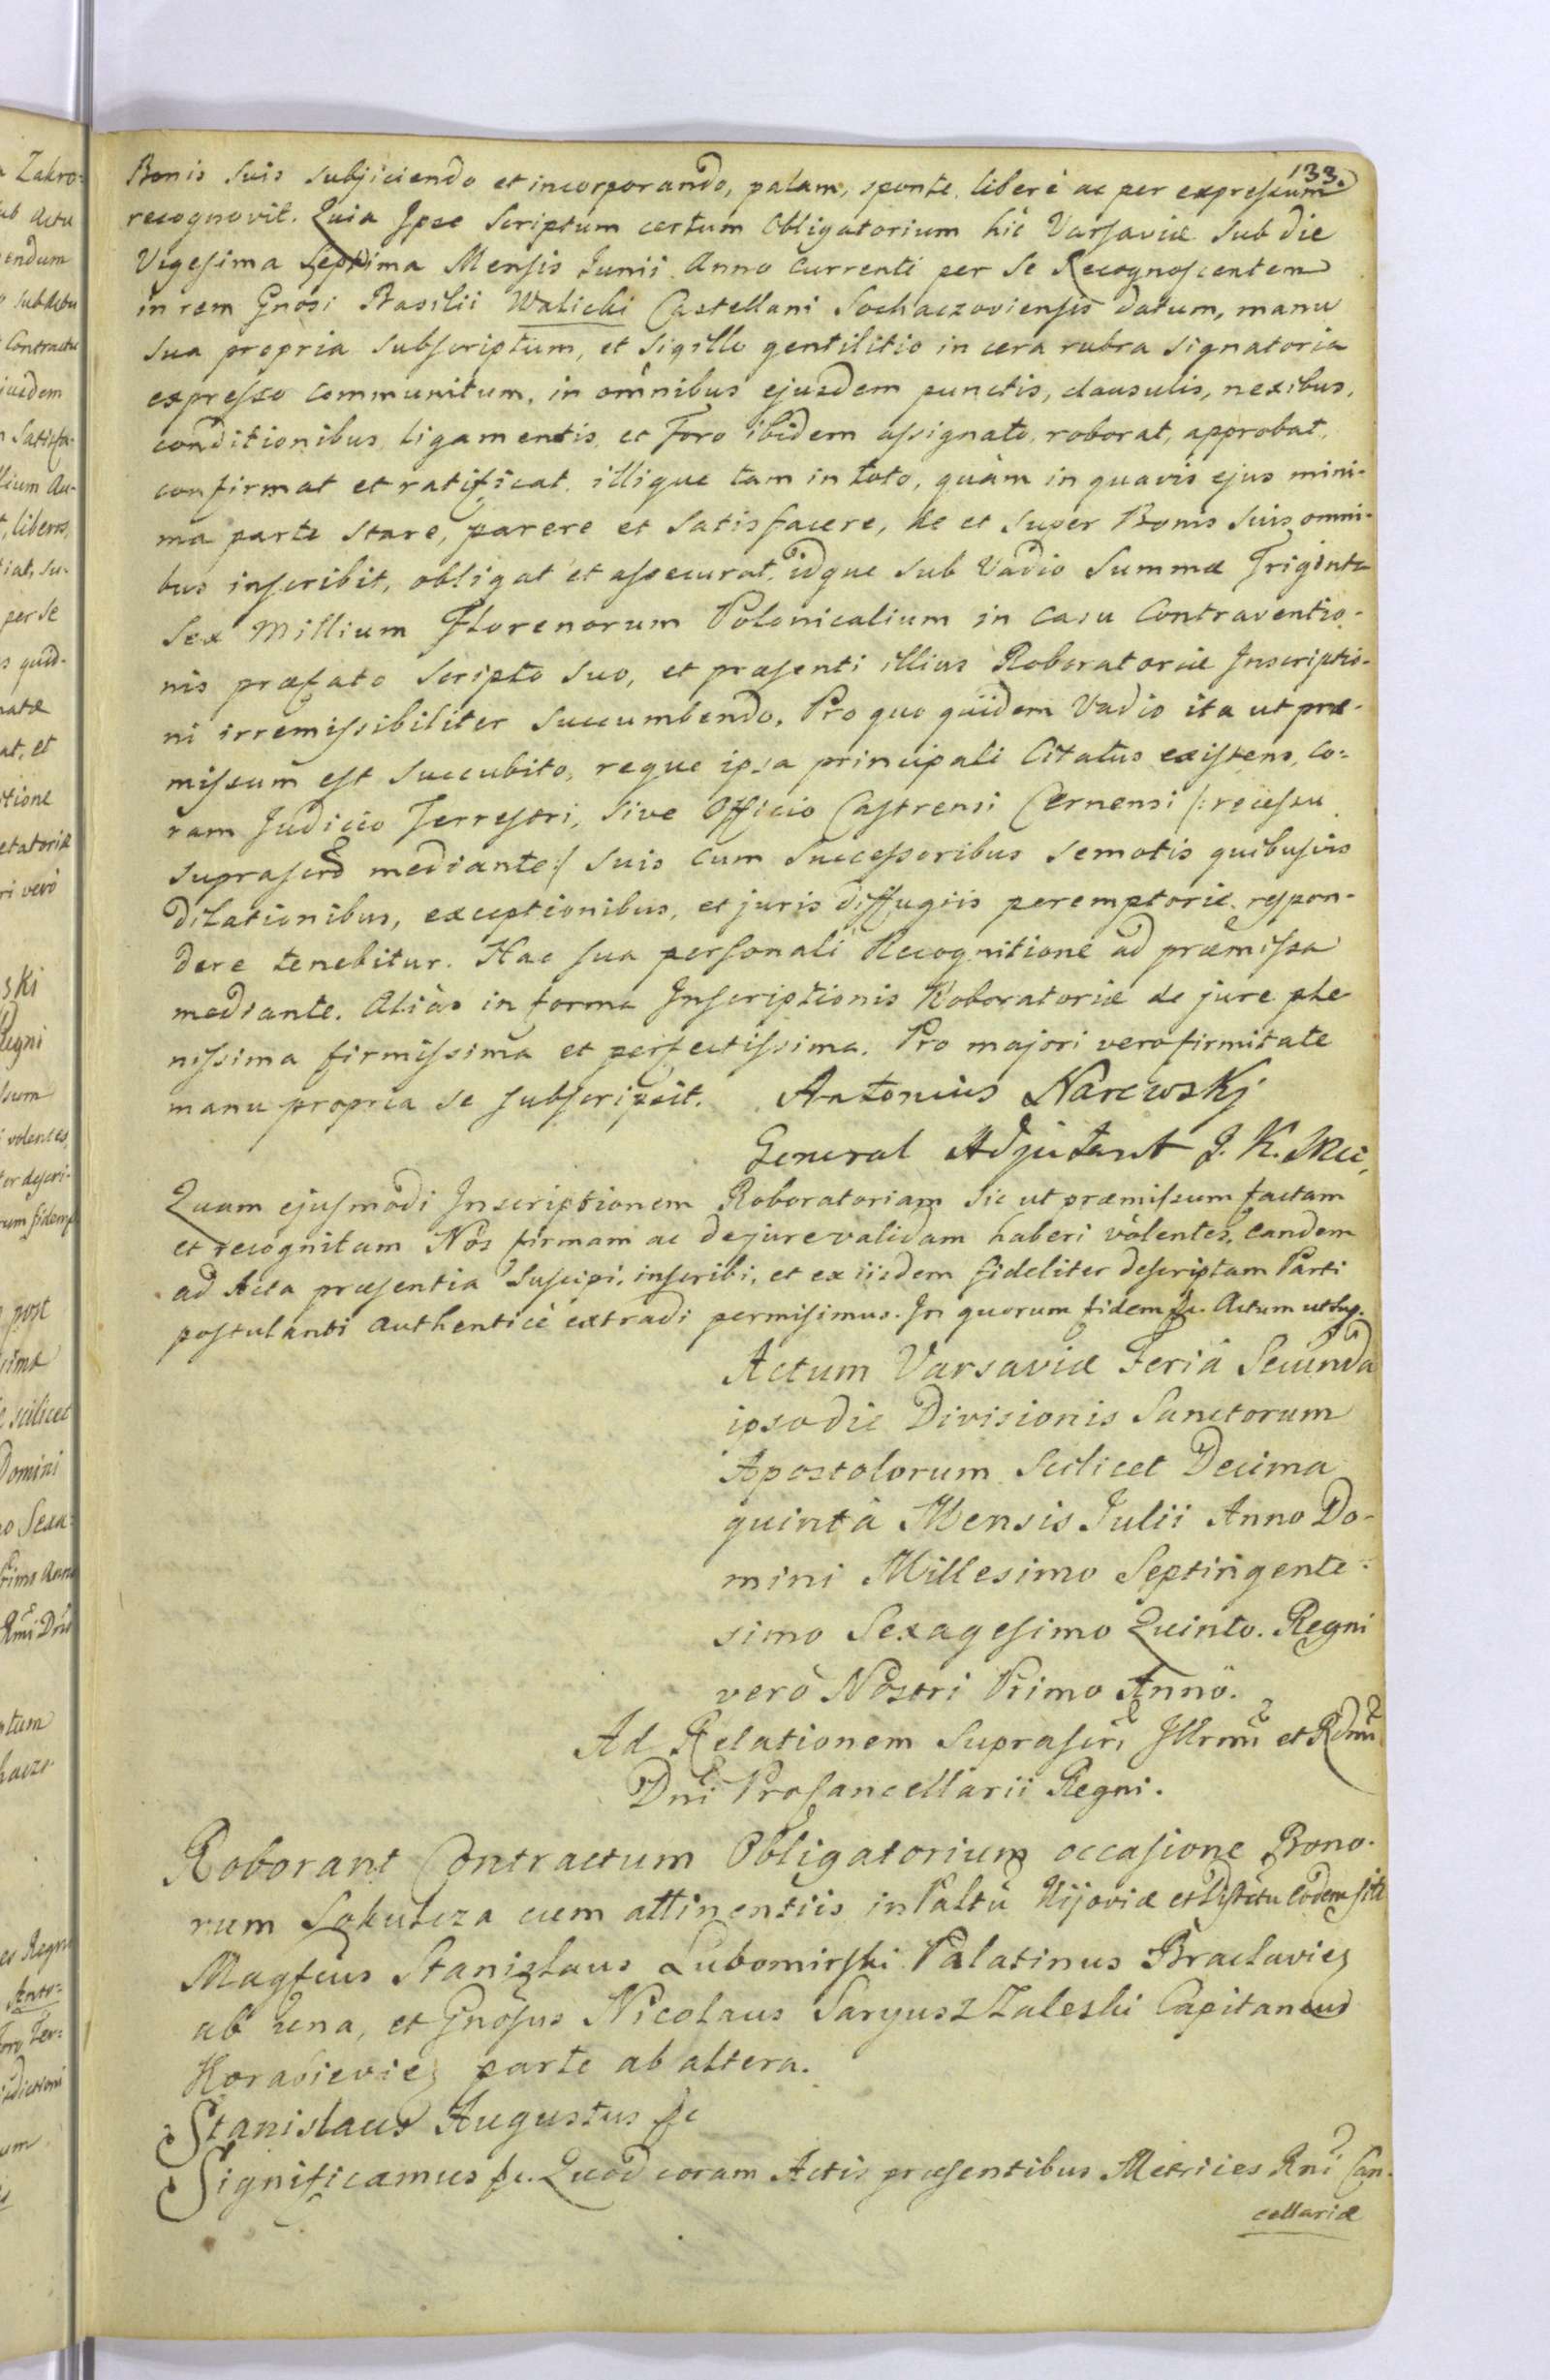 133.
Bonis suis subjiciendo et incorporando, palam, sponte, liberè ac per expressum
recognovit. Quia Ipse Scriptum certum Obligatorium hic Varsaviæ sub die
Vigesima Septima Mensis Junii Anno currenti per se Recognoscentem
in rem Gnosi Basilii Walicki Castellani Sochaczoviensis datum, manu
sua propria subscriptum, et sigillo gentilitio in cera rubra signatoria
expresso communitum, in omnibus ejusdem punctis, clausulis, nexibus,
conditionibus, ligamentis, et Foro ibidem assignato, roborat, approbat,
confirmat et ratificat, illique tam in toto, quàm in quavis ejus mini-
ma parte stare, parere et satisfacere, de et super Bonis suis omni-
bus inscribit, obligat et assecurat, idque sub Vadio Summæ Triginta
Sex Millium Florenorum Polonicalium in casu Contraventio-
nis præfato Scripto suo, et præsenti illius Roboratoriæ Inscriptio-
ni irremissibiliter succumbendo, Pro quo quidem Vadio ita ut præ-
missum est succubito, reque ipsa principali Citatus existens, co-
ram Judicio Terrestri, sive Officio Castrensi Cernensi /: recessu
suprascro mediante :/ suis cum Successoribus semotis quibusvis
dilationibus, exceptionibus, et juris diffugiis peremptoriè respon-
dere tenebitur. Hac sua personali Recognitione ad præmissa
mediante. Aliàs in forma Inscriptionis Roboratoriæ de jure ple
nissima firmissima et perfectissima. Pro majori vero firmitate
manu propria se subscripsit. Antonius Narewskj
General Adjutant J. K. Mci,
Quam ejusmodi Inscriptionem Roboratoriam sic ut præmissum factam
et recognitam Nos firmam ac de jure validam haberi volentes, eandem
ad Acta præsentia suscipi, inscribi, et ex iisdem fideliter descriptam Parti
postulanti authenticè extradi permisimus. In quorum fidem &c. Actum ut sup.
Actum Varsaviæ Feriâ Secunda
ipso die Divisionis Sanctorum
Apostolorum scilicet Decima
quintâ Mensis Julii Anno Do-
mini Millesimo Septingente-
simo Sexagesimo Quinto. Regni
verò Nostri Primo Anno.
Ad Relationem suprascri Illrmi et Rdmi
Dni Procancellarii Regni.
Roborant Contractum Obligatorium occasione Bono-
rum cum attinentiis in Paltu Kijoviæ et Districtu eodem sit.
Magfcus Stanislaus Lubomirski Palatinus Braclavies
ab una, et Gnosus Nicolaus Saryusz Zaleski Capitaneus
parte ab altera.
Stanislaus Augustus &c
Significamus &c. Quod coram Actis præsentibus Metrices Rni Can-
cellariæ